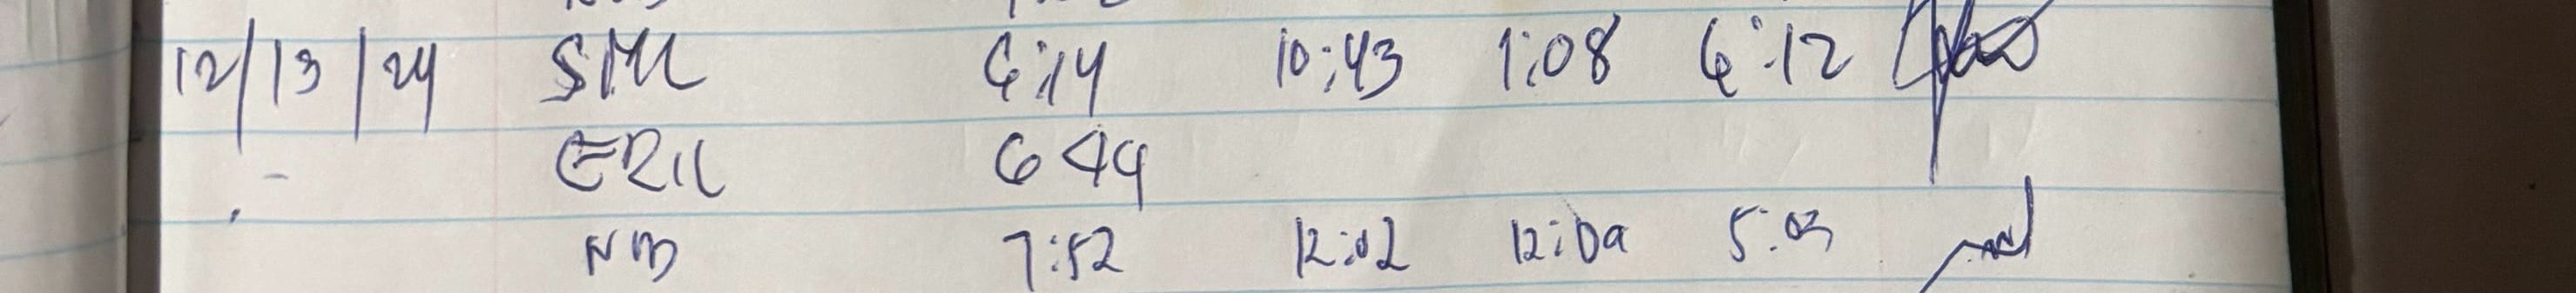 12/13/24 SML 6:14 10:43 1:08 6:12
ERIC 6 44
NB 7:52 12:02 12:09 5:03